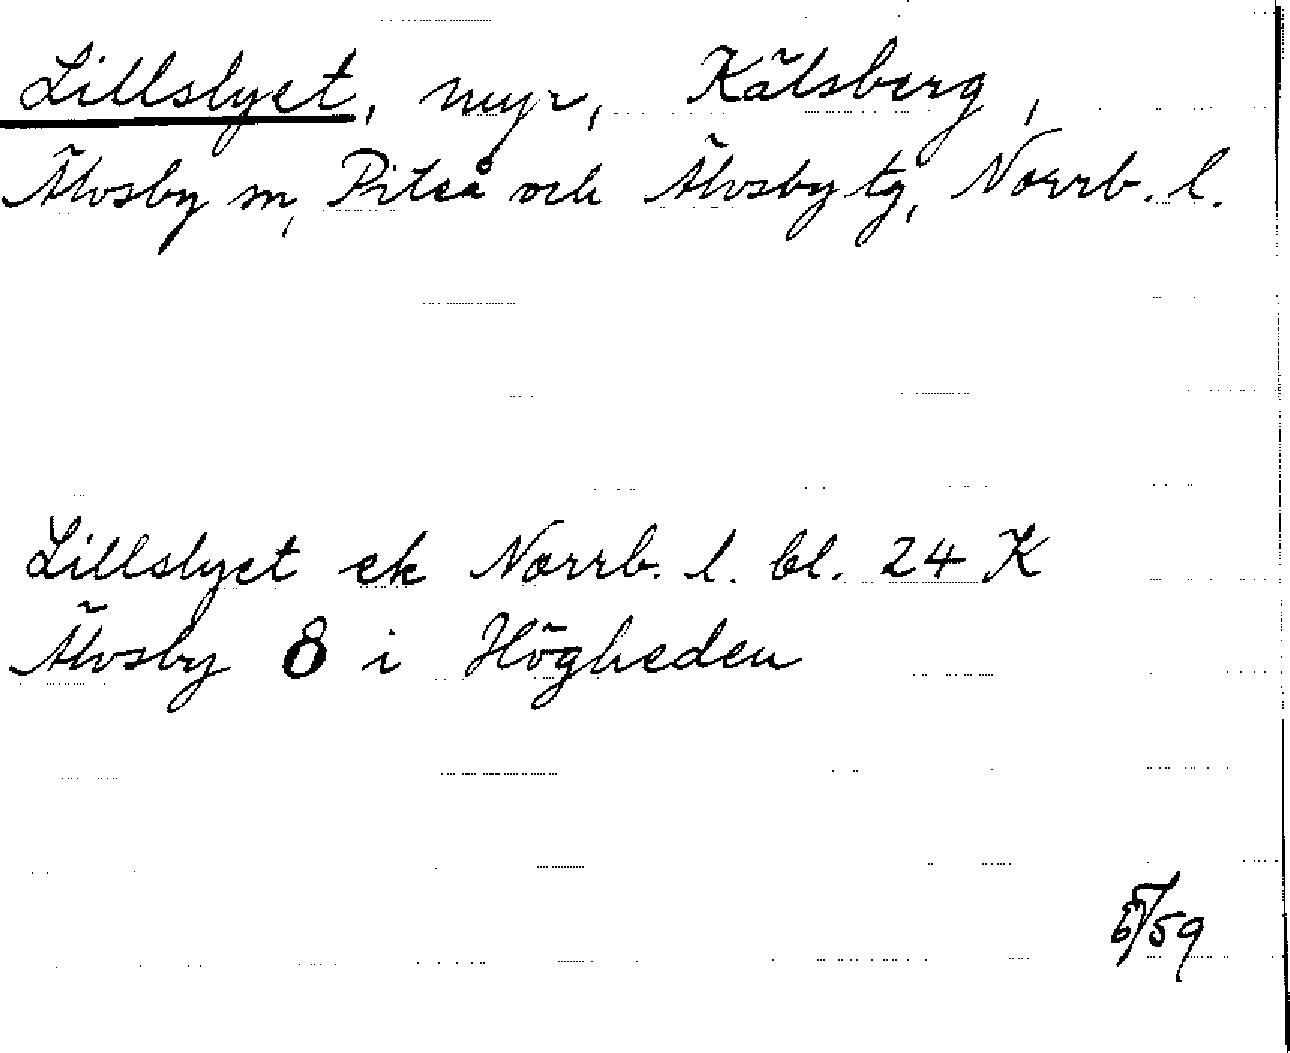 Lillslyet, myr, Kälsberg,
Älvsby sn, Piteå och Älvsby tg, Norrb. l.
Lillslyet ek Norrb. l. bl. 24 K
Älvsby 8 i Högheden